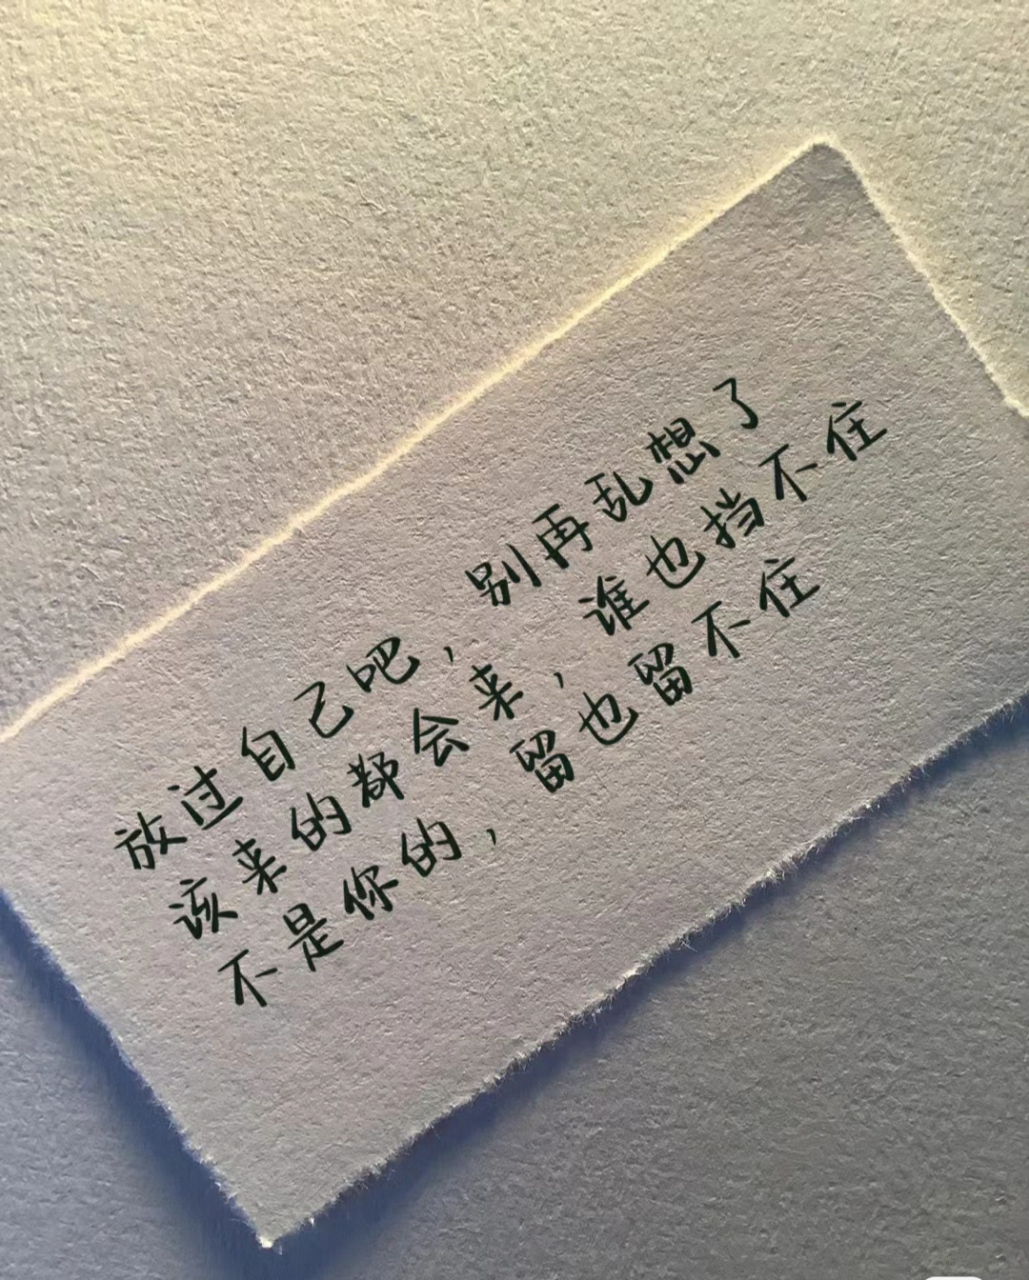 放过自己吧，别再乱想了
该来的都会来，谁也挡不住
不是你的，留也留不住